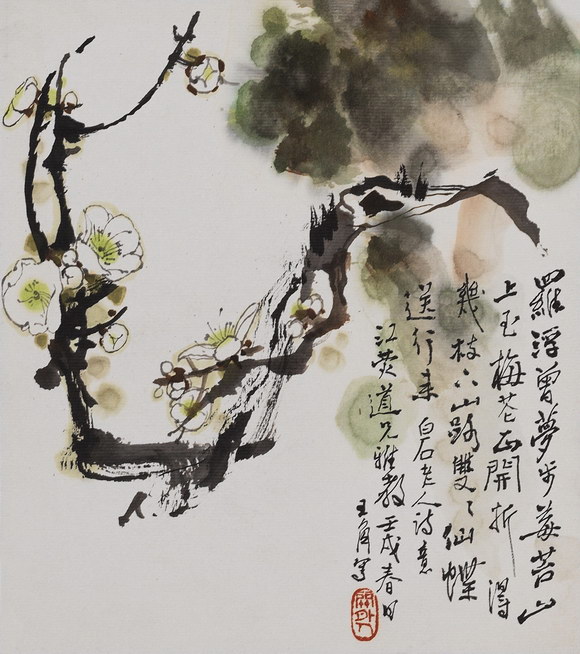 羅浮曾夢步莓苔山
上玉梅花正開折得
幾枝下山路雙々仙蝶
送行來 白石老人詩意
江荧道兄雅教 壬戌春日
王角寫